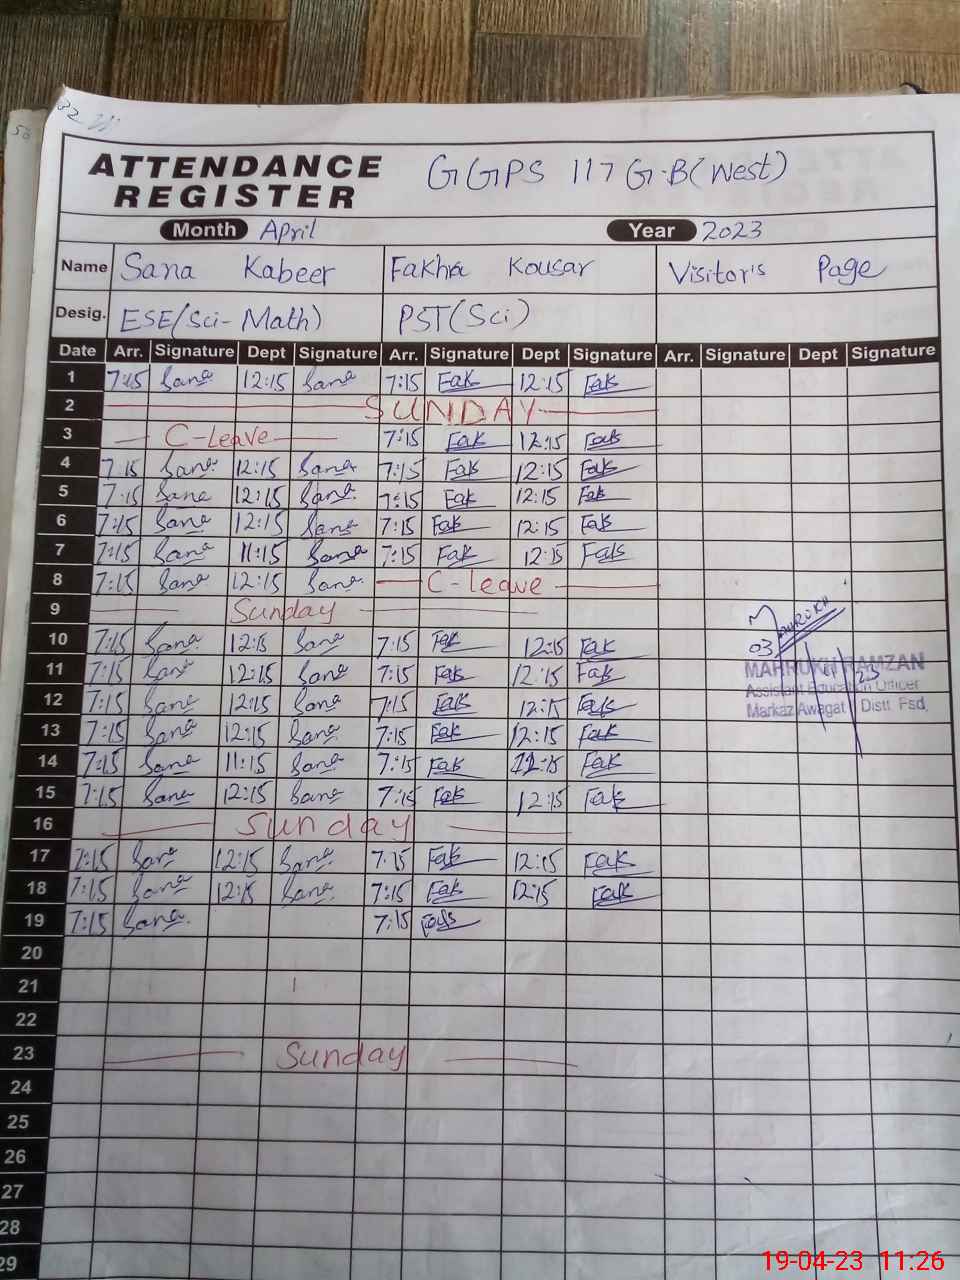 32
56
ATTENDANCE REGISTER GGPS 117 G.B(West)
Month April Year 2023
Name Sana Kabeer Fakhra Kousar Visitor's Page
Desig. ESE(Sci-Math) PST(Sci)
Date Arr. Signature Dept Signature Arr. Signature Dept Signature Arr. Signature Dept Signature
1 7:15 Sana 12:15 Sana 7:15 Fak 12:15 Fak
2 SUNDAY
3 C-leave 7:15 Fak 12:15 Fak
4 7:15 Sana 12:15 Sana 7:15 Fak 12:15 Fak
5 7:15 Sana 12:15 Sana 7:15 Fak 12:15 Fak
6 7:15 Sana 12:15 Sana 7:15 Fak 12:15 Fak
7 7:15 Sana 11:15 Sana 7:15 Fak 12:15 Fak
8 7:15 Sana 12:15 Sana C-leave
9 Sunday
10 7:15 Sana 12:15 Sana 7:15 Fak 12:15 Fak
11 7:15 Sana 12:15 Sana 7:15 Fak 12:15 Fak
12 7:15 Sana 12:15 Sana 7:15 Fak 12:15 Fak
13 7:15 Sana 12:15 Sana 7:15 Fak 12:15 Fak
14 7:15 Sana 11:15 Sana 7:15 Fak 12:15 Fak
15 7:15 Sana 12:15 Sana 7:15 Fak 12:15 Fak
16 Sunday
17 7:15 Sana 12:15 Sana 7:15 Fak 12:15 Fak
18 7:15 Sana 12:15 Sana 7:15 Fak 12:15 Fak
19 7:15 Sana 7:15 Fak
20
21
22
23 Sunday
24
25
26
27
28
29
03
MAHRUKH RAMZAN
Assistant Education Officer
Markaz Awagat Distt Fsd.
19-04-23 11:26